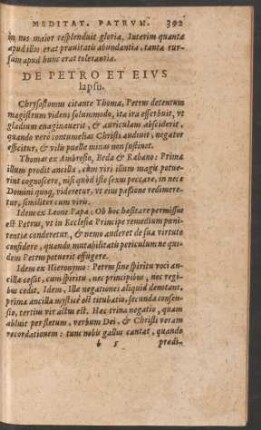 MEDITAT. PATRUM. 392
in nos maior resplenduit gloria. Interim quanta
apud illos erat prauitatis abundantia, tanta rur-
sum apud hunc erat tolerantia.
DE PETRO ET EIVS
lapsu.
Chrysostomus citante Thoma, Petrus detentum
magistrum videns solummodo, ita ira efferbuit, vt
gladium euaginauerit, & auriculam absciderit,
quando vero contumelias Christi audiuit, negator
efficitur, & vilis puellæ minas non sustinet.
Thomas ex Ambrosio, Beda & Rabano: Prima
illum prodit ancilla, cum viri illum magis potue-
rint cognoscere, nisi quod iste sexus peccare, in nece
Domini quoq; videretur, vt eius passione redimere-
tur, similiter cum viris.
Idem ex Leone Papa: Ob hoc hæsitare permissus
est Petrus, vt in Ecclesiæ Principe remedium pœni-
tentiæ conderetur, & nemo auderet de sua virtute
considere, quando mutabilitatis periculum ne qui-
dem Petrus potuerit effugere.
Idem ex Hieronymo: Petrus sine spiritu voci an-
cillæ cessit, cum spiritu, nec principibus, nec regi-
bus cedit. Idem, Illæ negationes aliquid demonstrant,
prima ancilla mysticè est titubatio, secunda consen-
sio, tertius vir actus est. Hæc trina negatio, quam
abluit per fletum, verbum Dei, & Christi veram
recordationem: tunc nobis gallus cantat, quando
b 5 prædi-